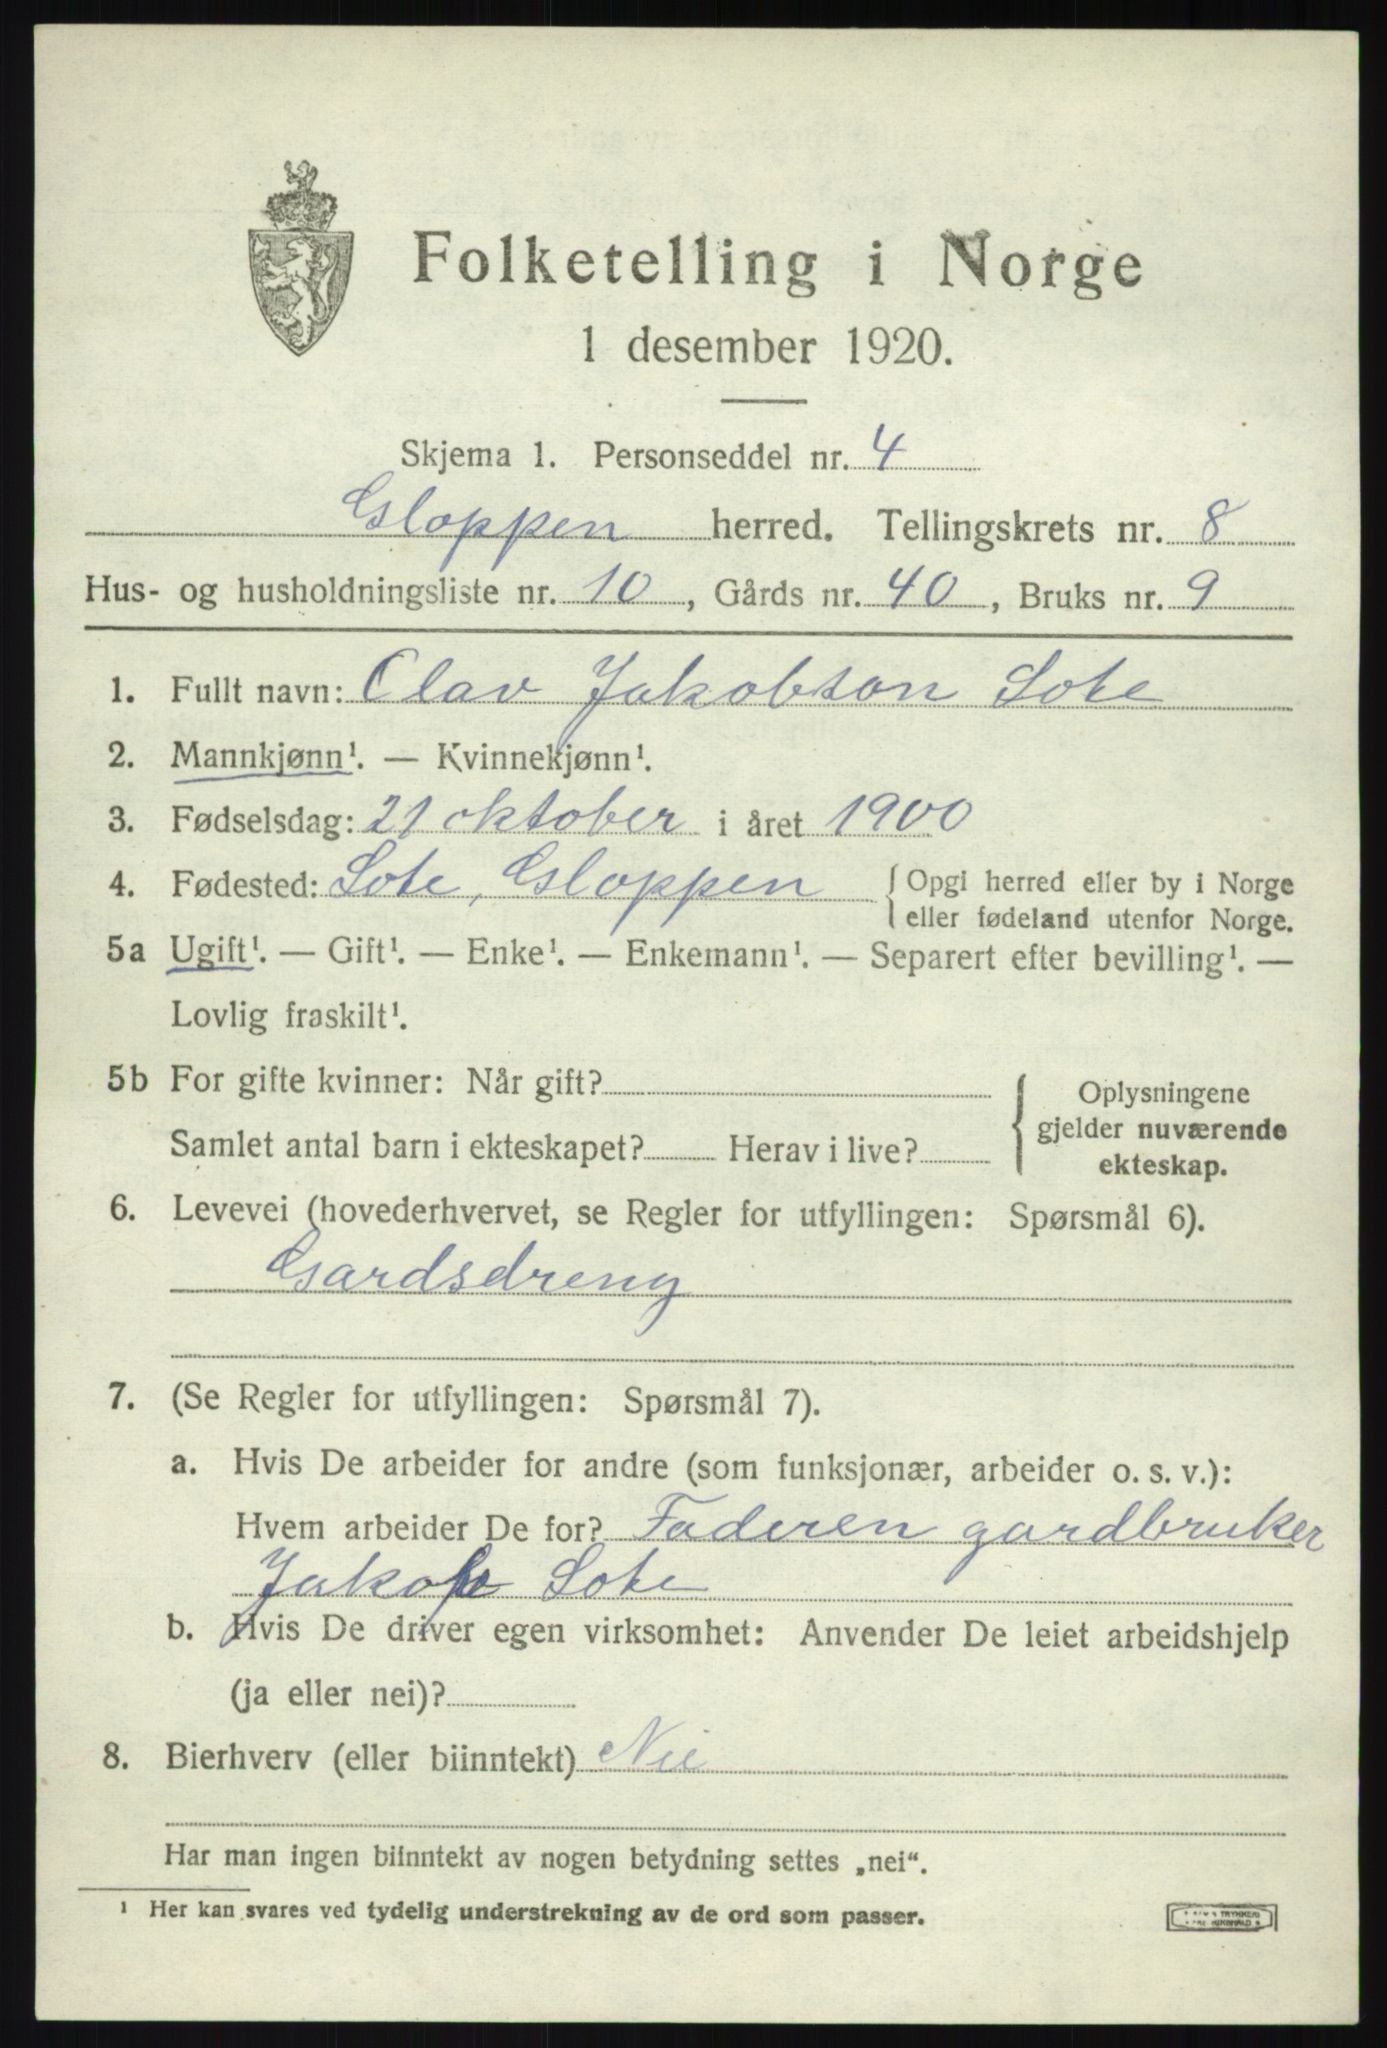 Folketelling i Norge
1 desember 1920.
Skjema 1. Personseddel nr. 4
Gloppen herred. Tellingskrets nr. 8
Hus- og husholdningsliste nr. 10, Gårds nr. 40, Bruks nr. 9
1. Fullt navn: Olav Jakobson Sote
2. Mannkjønn¹. — Kvinnekjønn¹.
3. Fødselsdag: 21 oktober i året 1900
4. Fødested: Sote, Gloppen { Opgi herred eller by i Norge
eller fødeland utenfor Norge.
5a Ugift¹. — Gift¹. — Enke¹. — Enkemann¹. — Separert efter bevilling¹. —
Lovlig fraskilt¹.
5b For gifte kvinner: Når gift? { Oplysningene
gjelder nuværende
Samlet antal barn i ekteskapet? Herav i live?
ekteskap.
6. Levevei (hovederhvervet, se Regler for utfyllingen: Spørsmål 6).
Gardsdreng
7. (Se Regler for utfyllingen: Spørsmål 7).
a. Hvis De arbeider for andre (som funksjonær, arbeider o. s. v.):
Hvem arbeider De for? Faderen gardbruker
Jakob Sote
b. Hvis De driver egen virksomhet: Anvender De leiet arbeidshjelp
(ja eller nei)?
8. Bierhverv (eller biinntekt) Nei
Har man ingen biinntekt av nogen betydning settes „nei“.
¹ Her kan svares ved tydelig understrekning av de ord som passer.